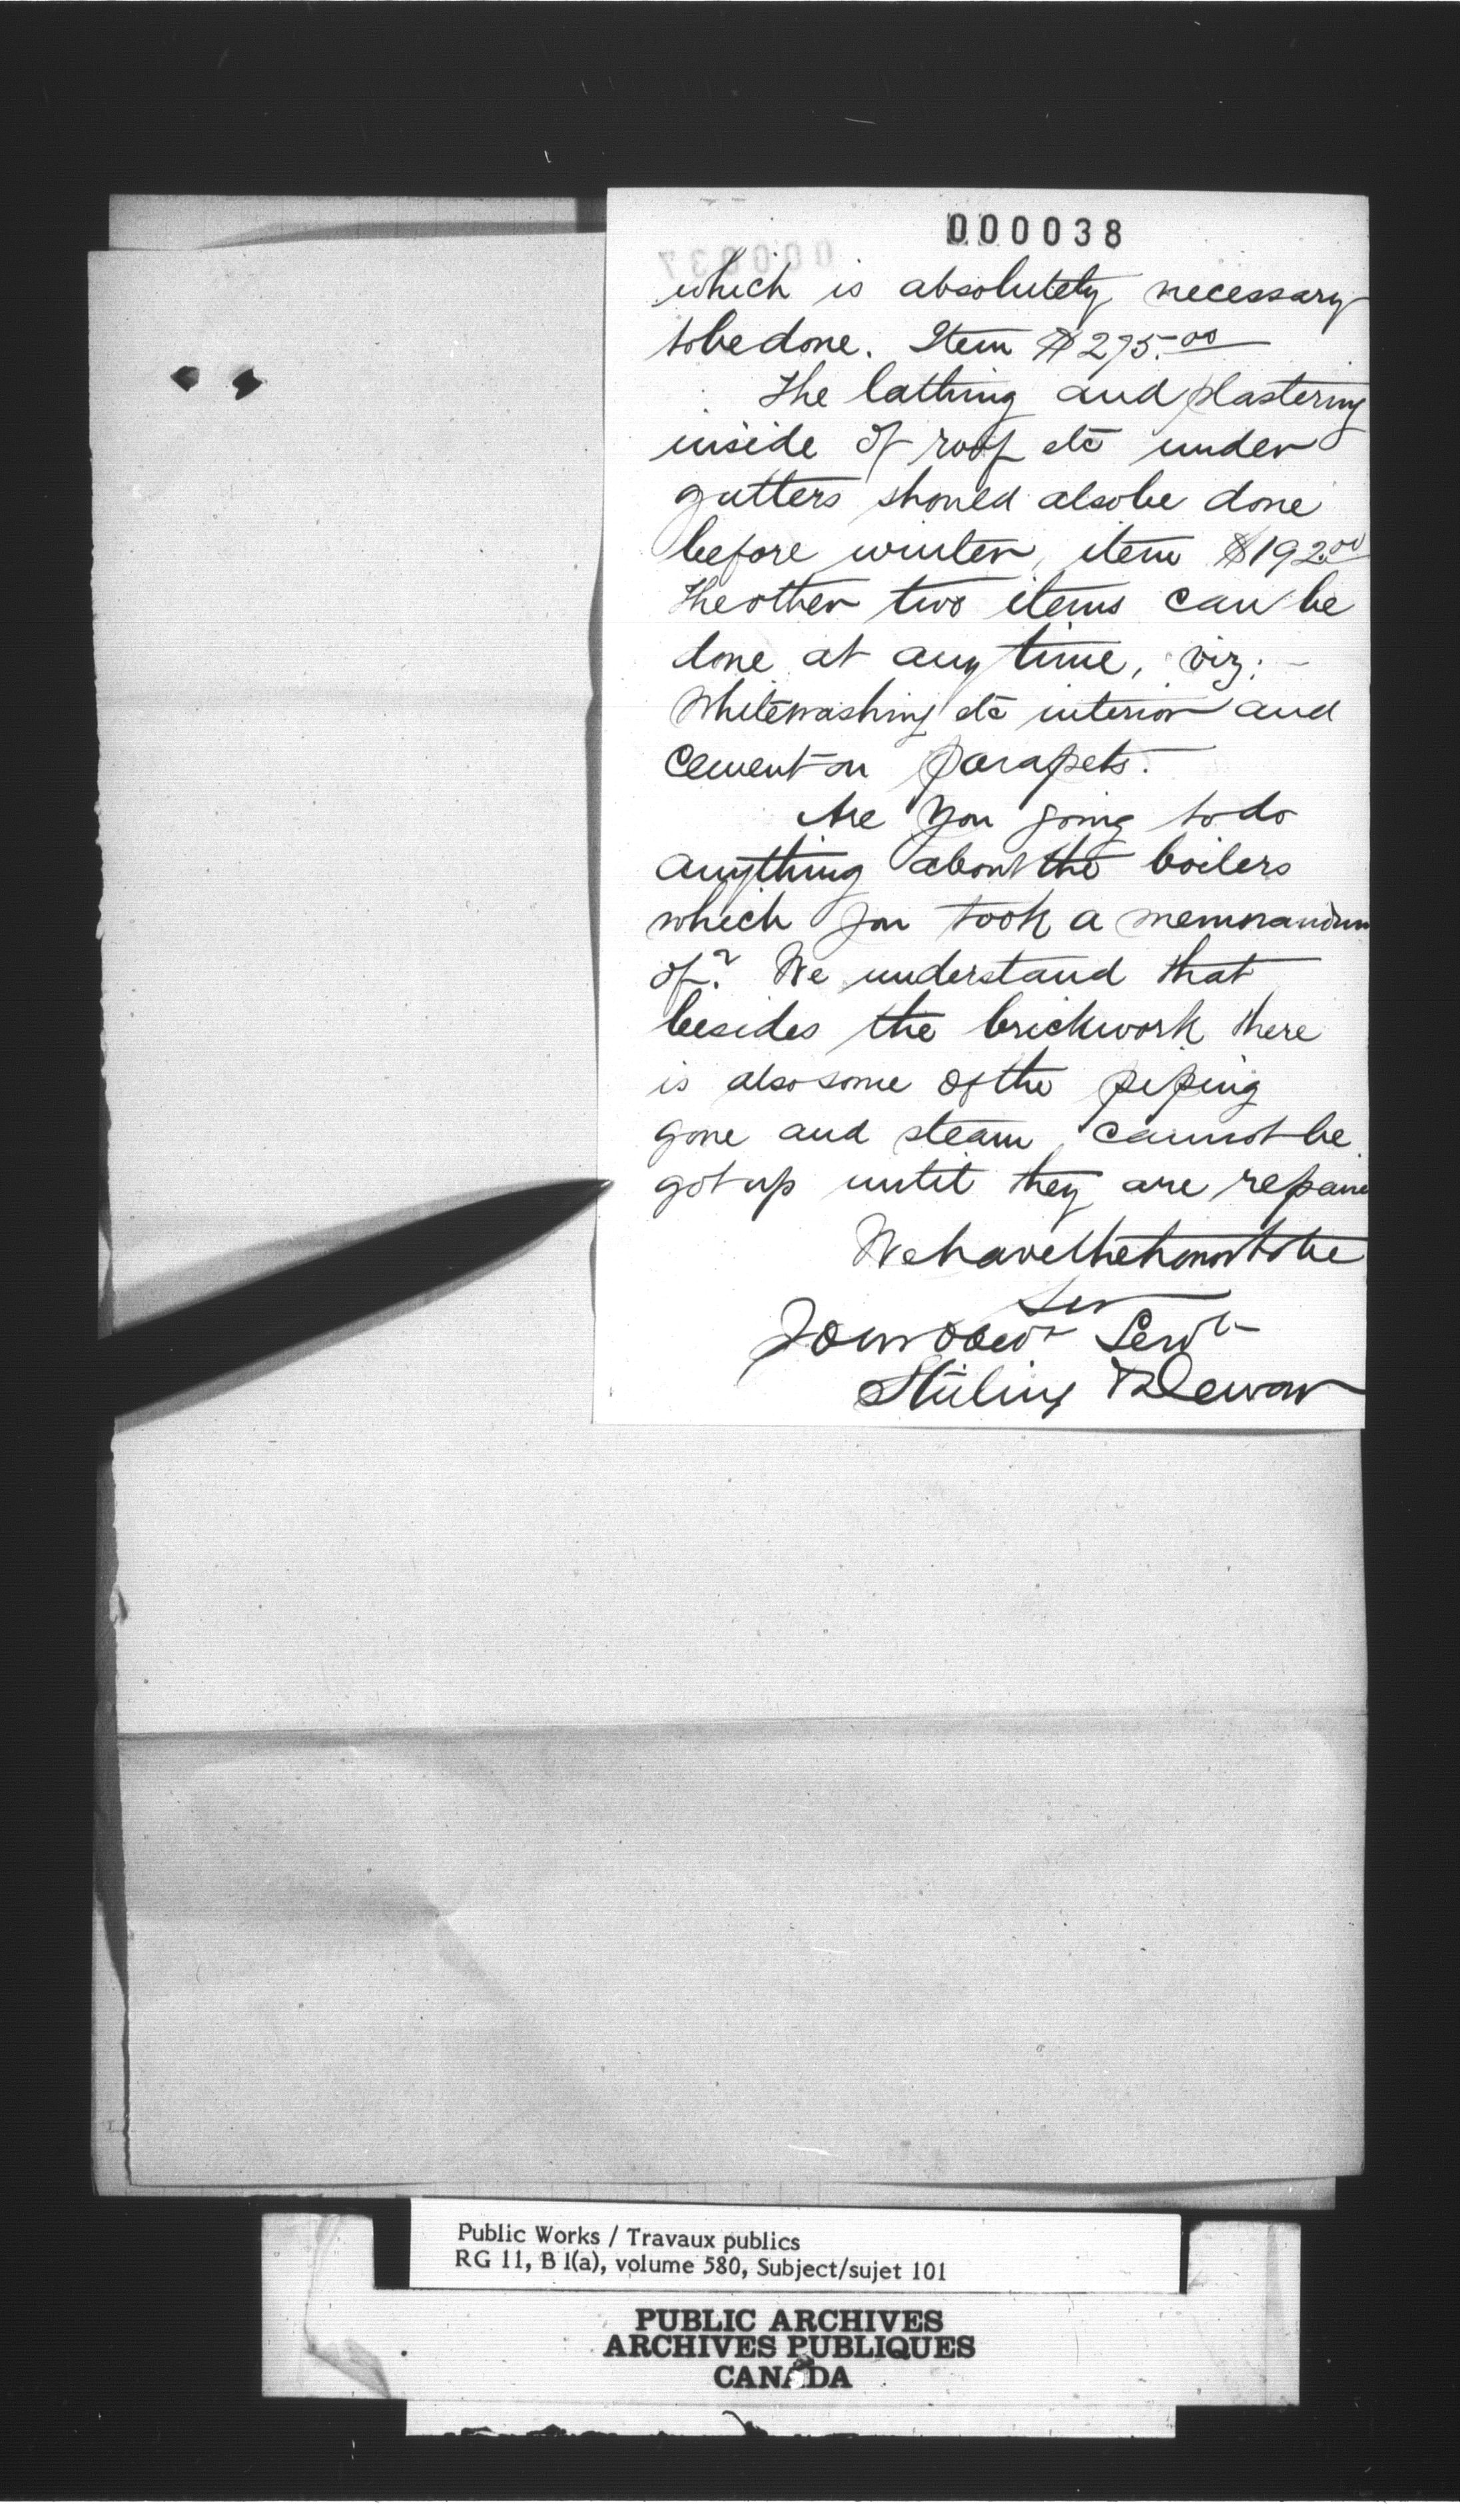 000038
which is absolutely necessary
to be done. Item $275.00
The lathing and plastering
inside of roof etc under
gutters should also be done
before winter, item $192.00
The other two items can be
done at any time, viz: -
Whitewashing etc interior and
cement on parapets.
Are you going to do
anything about the boilers
which you took a memorandum
of? We understand that
besides the brickwork there
is also some of the piping
gone and steam cannot be
got up until they are repaire
We have the honor to be
Sir
Your obedt Servt
Stirling & Dewar
Public Works / Travaux publics
RG 11, B 1(a), volume 580, Subject/sujet 101
PUBLIC ARCHIVES
ARCHIVES PUBLIQUES
CANADA